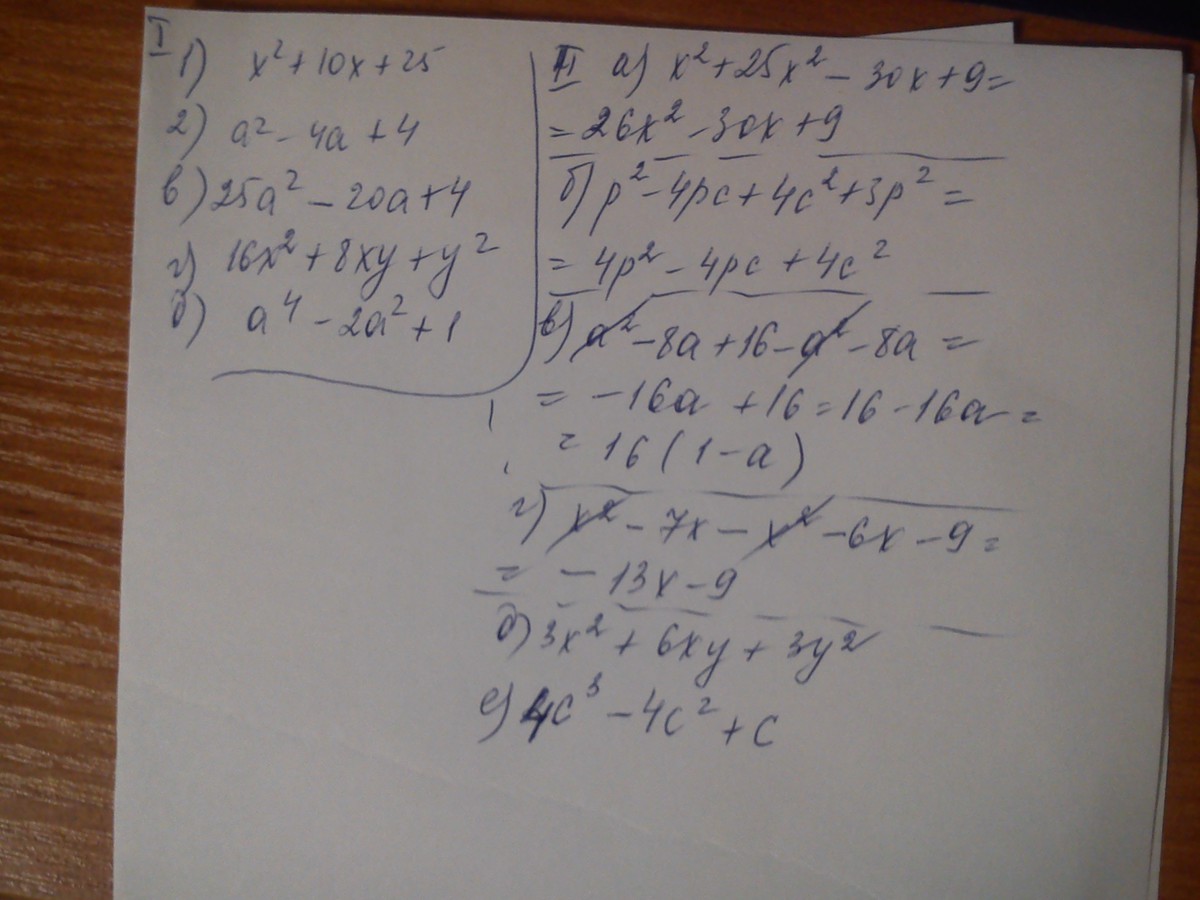 I
1) x² + 10x + 25
2) a² - 4a + 4
в) 25a² - 20a + 4
г) 16x² + 8xy + y²
д) a⁴ - 2a² + 1
II а) x² + 25x² - 30x + 9 =
= 26x² - 30x + 9
б) p² - 4pc + 4c² + 3p² =
= 4p² - 4pc + 4c²
в) a² - 8a + 16 - a² - 8a =
= - 16a + 16 = 16 - 16a =
= 16 (1 - a)
г) x² - 7x - x² - 6x - 9 =
= - 13x - 9
д) 3x² + 6xy + 3y²
е) 4c³ - 4c² + c